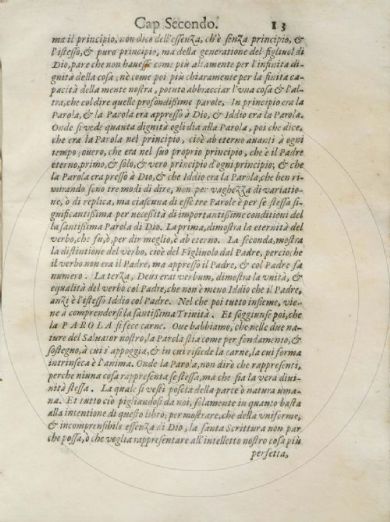 Cap. Secondo. 13
ma il principio, non dico dell'essenza, ch'è senza principio, &
l'istesso, & puro principio, ma della generatione del figliuol di
Dio, pare che non hauesse come più altamente per l'infinita di-
gnità della cosa, nè come poi più chiaramente per la finita ca-
pacità della mente nostra, potuto abbracciar l'vna cosa & l'al-
tra, che col dire quelle profondissime parole. In principio era la
Parola, & la Parola era appresso à Dio, & Iddio era la Parola.
Onde si vede quanta dignità egli dia alla Parola, poi che dice,
che era la Parola nel principio, cioè ab eterno auanti à ogni
tempo; ouero, che era nel suo proprio principio, che è il Padre
eterno, primo, & solo, & vero principio d'ogni principio; & che
la Parola era presso à Dio, & che Iddio era la Parola, che ben ri-
mirando sono tre modi di dire, non per vaghezza di variatio-
ne, ò di replica, ma ciascuna di esse tre Parole è per se stessa si-
gnificantissima per necessità di importantissime conditioni del
la santissima Parola di Dio. La prima, dimostra la eternità del
verbo, che fu, ò per dir meglio, è ab eterno. La seconda, mostra
la distintione del verbo, cioè del Figliuolo dal Padre, percio; che
il verbo non era il Padre, ma appresso il Padre, & col Padre fa
numero. La terza, Deus erat verbum, dimostra la vnità, &
equalità del verbo col Padre, che non è meno Iddio che il Padre,
anzi è l'istesso Iddio col Padre. Nel che poi tutto insieme, vie-
ne à comprendersi la santissima Trinità. Et soggiunse poi, che
la PAROLA si fece carne. Oue habbiamo, che nelle due na-
ture del Saluator nostro, la Parola stia come per fondamento, &
sostegno, à cui s'appoggia, & in cui risiede la carne, la cui forma
intrinseca è l'anima. Onde la Parola, non dirò che rappresenti,
perche niuna cosa rappresenta se stessa, ma che sia la vera diui-
nità stessa. La quale si vestì poscia della parte ò natura uma-
na. Et tutto ciò pigliandosi da noi, solamente in quanto basta
alla intentione di questo libro, per mostrare, che della vniforme,
& incomprensibile essenza di Dio, la santa Scrittura non par
che possa, ò che voglia rappresentare all'intelletto nostro cosa più
perfetta,